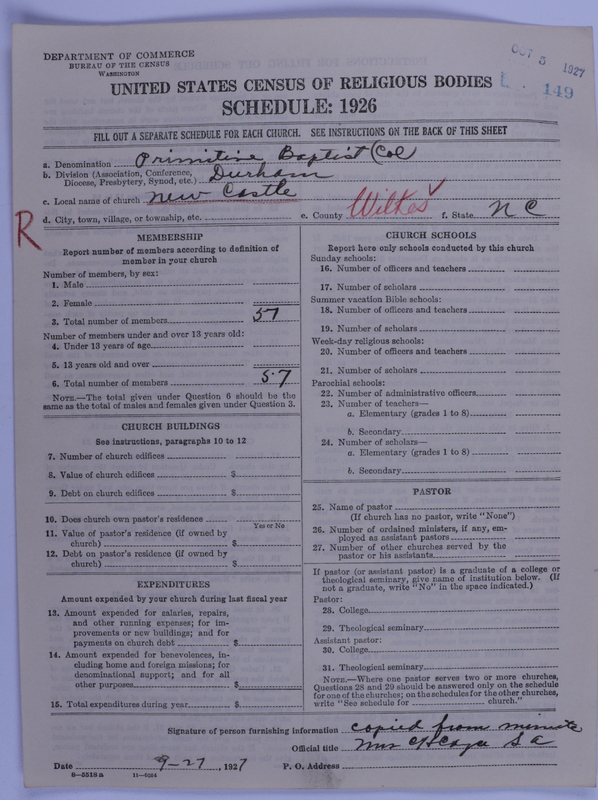 DEPARTMENT OF COMMERCE
BUREAU OF THE CENSUS
WASHINGTON
OCT 5 1927
149
UNITED STATES CENSUS OF RELIGIOUS BODIES
SCHEDULE: 1926
FILL OUT A SEPARATE SCHEDULE FOR EACH CHURCH. SEE INSTRUCTIONS ON THE BACK OF THIS SHEET
a. Denomination Primitive Baptist (Col
b. Division (Association, Conference, Diocese, Presbytery, Synod, etc.) Durham
c. Local name of church New Castle
d. City, town, village, or township, etc. e. County Wilkes f. State N C
R
MEMBERSHIP
Report number of members according to definition of
member in your church
Number of members, by sex:
1. Male
2. Female
3. Total number of members 57
Number of members under and over 13 years old:
4. Under 13 years of age
5. 13 years old and over
6. Total number of members 57
NOTE.—The total given under Question 6 should be the
same as the total of males and females given under Question 3.
CHURCH BUILDINGS
See instructions, paragraphs 10 to 12
7. Number of church edifices
8. Value of church edifices $
9. Debt on church edifices $
10. Does church own pastor's residence
Yes or No
11. Value of pastor's residence (if owned by
church) $
12. Debt on pastor's residence (if owned by
church) $
EXPENDITURES
Amount expended by your church during last fiscal year
13. Amount expended for salaries, repairs,
and other running expenses; for im-
provements or new buildings; and for
payments on church debt $
14. Amount expended for benevolences, in-
cluding home and foreign missions; for
denominational support; and for all
other purposes $
15. Total expenditures during year $
CHURCH SCHOOLS
Report here only schools conducted by this church
Sunday schools:
16. Number of officers and teachers
17. Number of scholars
Summer vacation Bible schools:
18. Number of officers and teachers
19. Number of scholars
Week-day religious schools:
20. Number of officers and teachers
21. Number of scholars
Parochial schools:
22. Number of administrative officers
23. Number of teachers—
a. Elementary (grades 1 to 8)
b. Secondary
24. Number of scholars—
a. Elementary (grades 1 to 8)
b. Secondary
PASTOR
25. Name of pastor
(If church has no pastor, write "None")
26. Number of ordained ministers, if any, em-
ployed as assistant pastors
27. Number of other churches served by the
pastor or his assistants
If pastor (or assistant pastor) is a graduate of a college or
theological seminary, give name of institution below. (If
not a graduate, write "No" in the space indicated.)
Pastor:
28. College
29. Theological seminary
Assistant pastor:
30. College
31. Theological seminary
NOTE.—Where one pastor serves two or more churches,
Questions 28 and 29 should be answered only on the schedule
for one of the churches; on the schedules for the other churches,
write "See schedule for church."
Signature of person furnishing information copied from minute
Official title Mrs S A
Date 9-27, 1927 P. O. Address
8—5518 a 11—9034